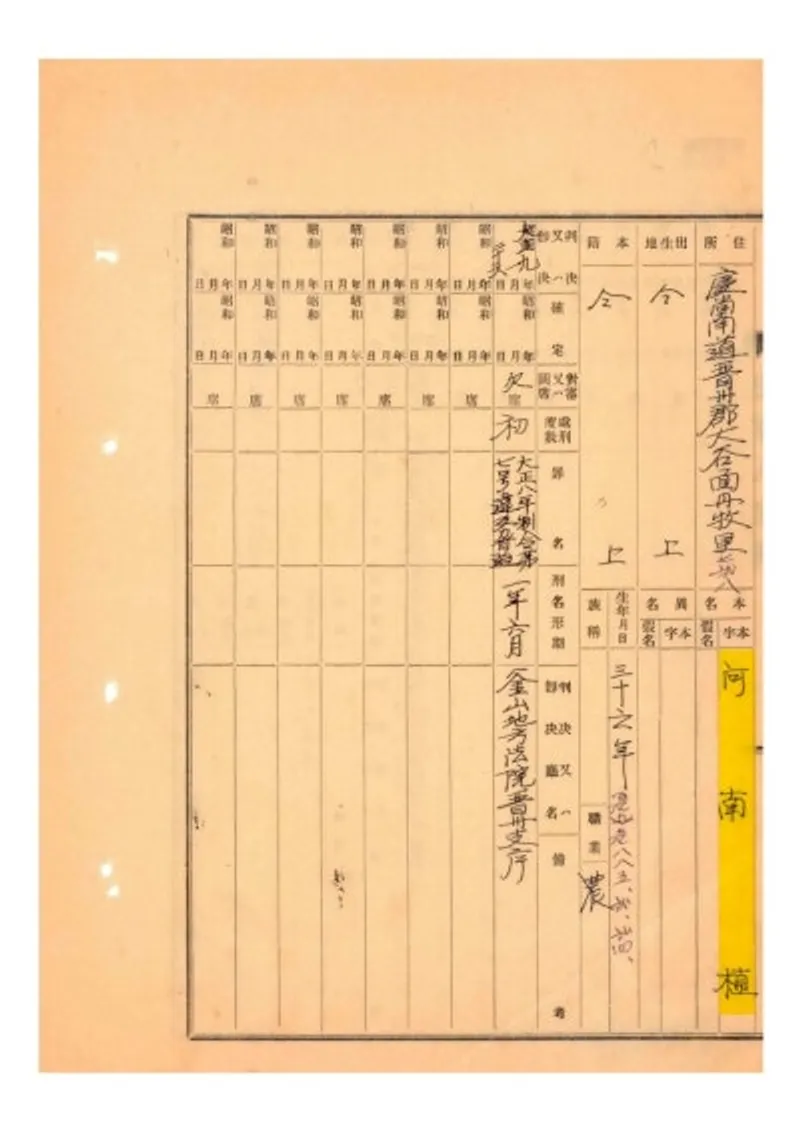 住所
慶尚南道晋州郡大谷面丹牧里
出生地
仝上
本籍
仝上
本名
本字
假名
河南植
異名
本字
假名
生年月日
三十六年
族稱
職業
農
判決又ハ即決
大正九
年月日
確定
昭和 年月日
對審又ハ闕席
欠席
處刑度數
初
罪名
大正八年制令第
七号違反
刑名刑期
一年六月
判決又ハ即決廳名
釜山地方法院晋州支庁
備考
昭和 年月日
昭和 年月日
席
昭和 年月日
昭和 年月日
席
昭和 年月日
昭和 年月日
席
昭和 年月日
昭和 年月日
席
昭和 年月日
昭和 年月日
席
昭和 年月日
昭和 年月日
席
昭和 年月日
昭和 年月日
席